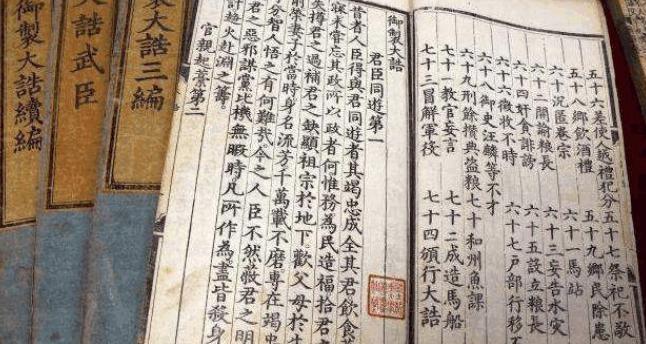 五十六差使人越禮犯分 五十七祭祀不敬
五十八鄉飲酒禮 五十九鄉民除患
六十沉匿卷宗 六十一馬站
六十二閒諭粮長 六十三妄告水灾
六十四奸貪誹謗 六十五設立粮長
六十六徵收不時 六十七戶部行移不
六十八御史汪麟等不才
六十九刑餘攢典盜粮 七十和州魚課
七十一教官妄言 七十二成造馬船
七十三冒解軍役 七十四頒行大誥
御製大誥
君臣同遊第一
昔者人臣得與君同遊者其竭忠成全其君飲食
寐未嘗忘其政所以政者何惟務為民造福拾君之
失撙君之過補君之缺顯祖宗於地下歡父母於
前榮妻子於當時身名流芳千萬載不磨專在竭忠
分智人悟之有何難哉今之人臣不然蔽君之明
君之惡邪謀黨比機無暇時凡所作為盡皆殺身
計趨火赴淵之籌
官親起藁第二
製大誥三編
大誥武臣
御製大誥續編